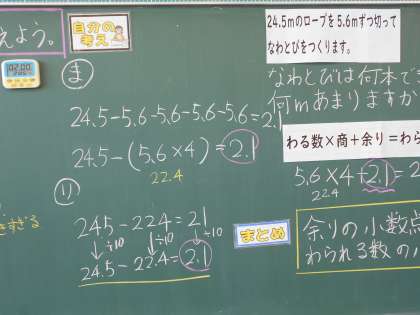 えよう。
自分の考え
02:00
ま
24.5-5.6-5.6-5.6-5.6=2.1
24.5-(5.6×4)=2.1
22.4
り
245-224=21
÷10 ÷10 ÷10
24.5-22.4=2.1
すぎる
24.5mのロープを5.6mずつ切って
なわとびをつくります。
なわとびは何本で
何mあまりますか
わる数×商+余り=わら
5.6×4+2.1=2
22.4
まとめ
余りの小数点
わられる数の